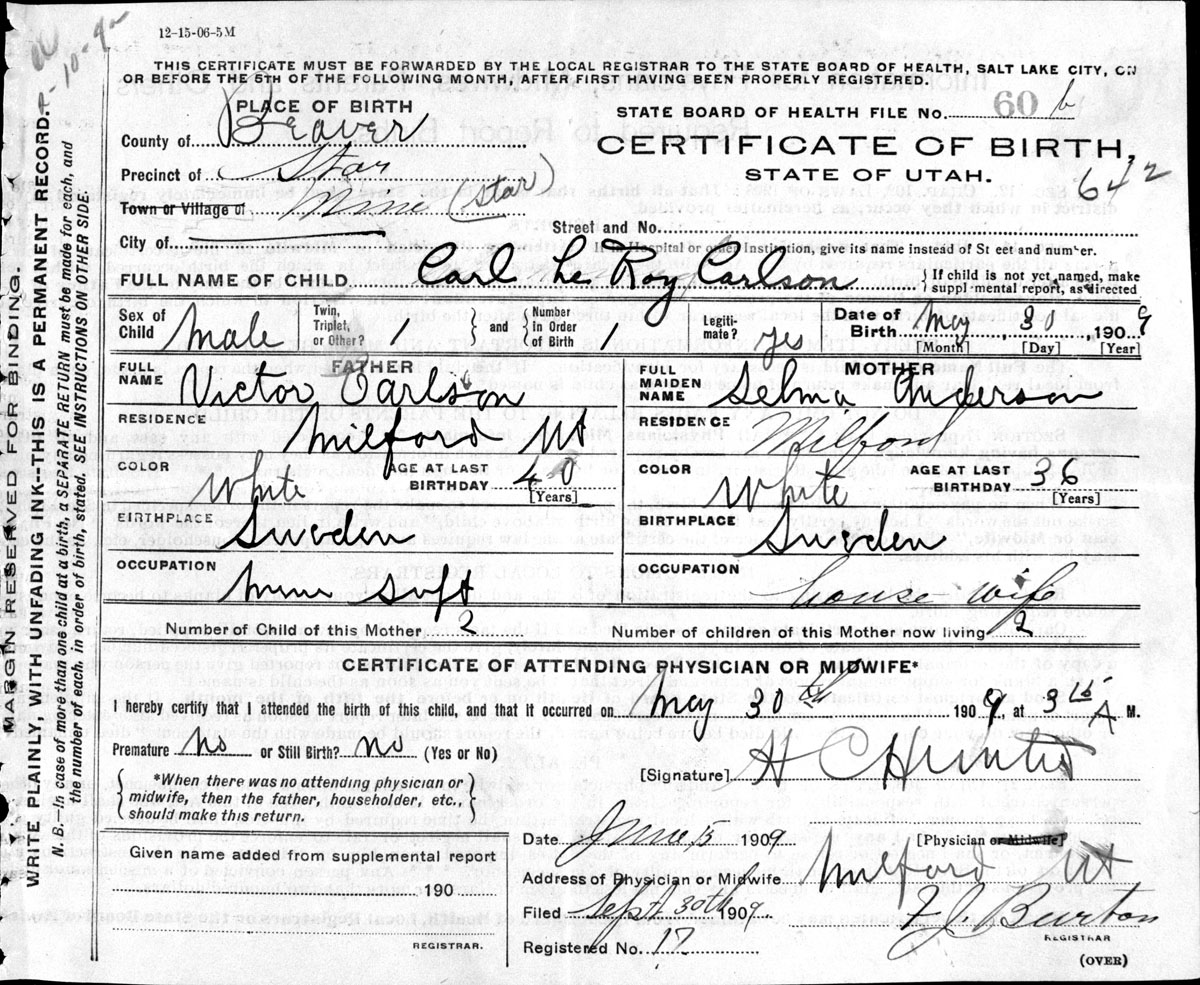 12-15-06-5M
10-9-
THIS CERTIFICATE MUST BE FORWARDED BY THE LOCAL REGISTRAR TO THE STATE BOARD OF HEALTH, SALT LAKE CITY, ON
OR BEFORE THE 5TH OF THE FOLLOWING MONTH, AFTER FIRST HAVING BEEN PROPERLY REGISTERED.
PLACE OF BIRTH
STATE BOARD OF HEALTH FILE No. 60 6
County of Beaver
CERTIFICATE OF BIRTH,
STATE OF UTAH. 642
Precinct of Star
Town or Village of Mine (Star)
Street and No.
City of
If in Hospital or other Institution, give its name instead of Street and number.
FULL NAME OF CHILD Carl Le Roy Carlson
{If child is not yet named, make supplemental report, as directed
Sex of Child Male
Twin, Triplet, or Other? 1
{ and } Number in Order of Birth 1
Legiti- mate? yes
Date of Birth May 30 1909
[Month] [Day] [Year]
FATHER
FULL NAME Victor Carlson
RESIDENCE Milford Ut
COLOR White
AGE AT LAST BIRTHDAY 40
[Years]
BIRTHPLACE Sweden
OCCUPATION Mine Supt
MOTHER
FULL MAIDEN NAME Selma Anderson
RESIDENCE Milford
COLOR White
AGE AT LAST BIRTHDAY 36
[Years]
BIRTHPLACE Sweden
OCCUPATION house wife
Number of Child of this Mother 2
Number of children of this Mother now living 2
CERTIFICATE OF ATTENDING PHYSICIAN OR MIDWIFE*
I hereby certify that I attended the birth of this child, and that it occurred on May 30th 1909, at 3 15 A. M.
Premature no or Still Birth? no (Yes or No)
{*When there was no attending physician or
midwife, then the father, householder, etc.,
should make this return.}
[Signature] H C Hunter
[Physician or Midwife]
Date June 15 1909
Address of Physician or Midwife Milford Ut
Given name added from supplemental report
190
REGISTRAR.
Filed Sept 30th 1909
Burton
REGISTRAR
Registered No. 17
(OVER)
MARGIN RESERVED FOR BINDING.
WRITE PLAINLY, WITH UNFADING INK--THIS IS A PERMANENT RECORD.
N. B.--In case of more than one child at a birth, a SEPARATE RETURN must be made for each, and
the number of each, in order of birth, stated. SEE INSTRUCTIONS ON OTHER SIDE.